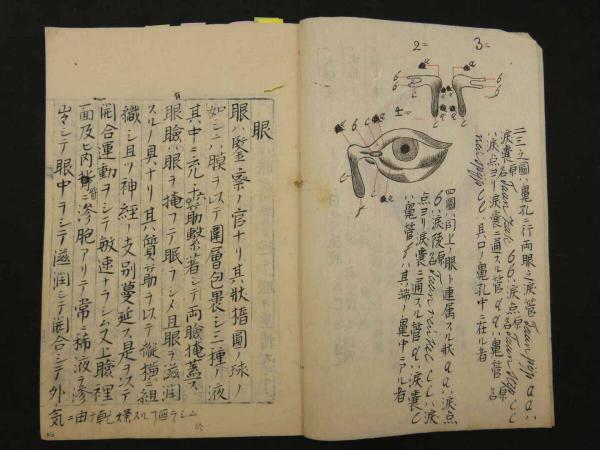 2=
3=
4=
二三之圖ハ鼻孔ニ行両眼之涙管 a a ハ
涙嚢原名 b b ハ涙点原名 c c
ハ涙点ヨリ涙嚢ニ通スル管 d d ハ鼻管原名
neus pijp ハ其口ノ鼻孔中ニ在ル者
四圖ハ同上ノ眼ト連属スル状 a a ハ涙点
b ハ涙 原名 c c ハ涙
点ヨリ涙嚢ニ通スル管 d ハ涙嚢 e
ハ鼻管 f ハ其端ノ鼻中ニアル者
眼
眼ハ鑒察ノ官ナリ其狀楕圓ノ球ノ
如シ 膜ヲ以テ圍層包裹シ三種ノ液
其中ニ充 筋繋著シテ両瞼掩蓋ス
眼瞼ハ眼ヲ掩フテ眠ヲシメ且眼ヲ滋潤
スルノ具ナリ其質筋ヲ以テ縦横ニ組
織シ且ツ神經ノ支別蔓延ス是ヲ以テ
開合運動ヲシテ敏速ナラシム又上瞼裡
面及ヒ内眥ニ滲胞アリテ常ニ稀液ヲ滲
シテ眼中ヲシテ滋潤シテ開合シテ外気
ニ由 乾燥スル ラシム